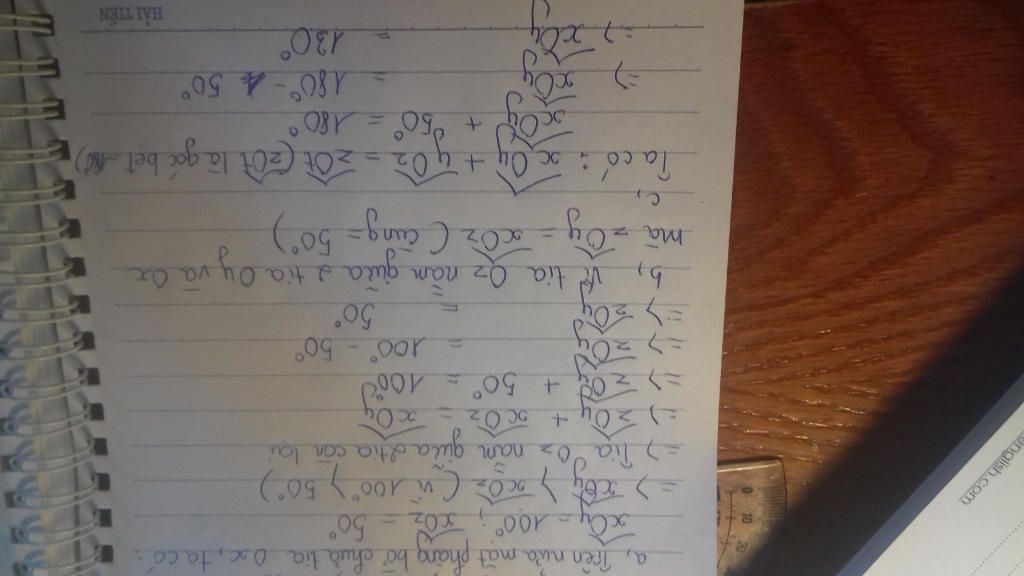 a, Trên nửa mặt phẳng bờ chứa tia Ox, ta có:
xOy = 100°; xOz = 50°
=> xOy > xOz (vì 100° > 50°)
=> Tia Oz nằm giữa 2 tia còn lại
=> zOy + xOz = xOy
=> zOy + 50° = 100°
=> zOy = 100° - 50°
=> zOy = 50°
b, Vì tia Oz nằm giữa 2 tia Oy và Ox
mà zOy = xOz (cùng = 50°)
c,
Ta có: xOy + yOz = zOt (zOt là góc bẹt)
xOy + 50° = 180°
=> xOy = 180° - 50°
=> xOy = 130°
HẢI TIẾN
english.com
0
10
20